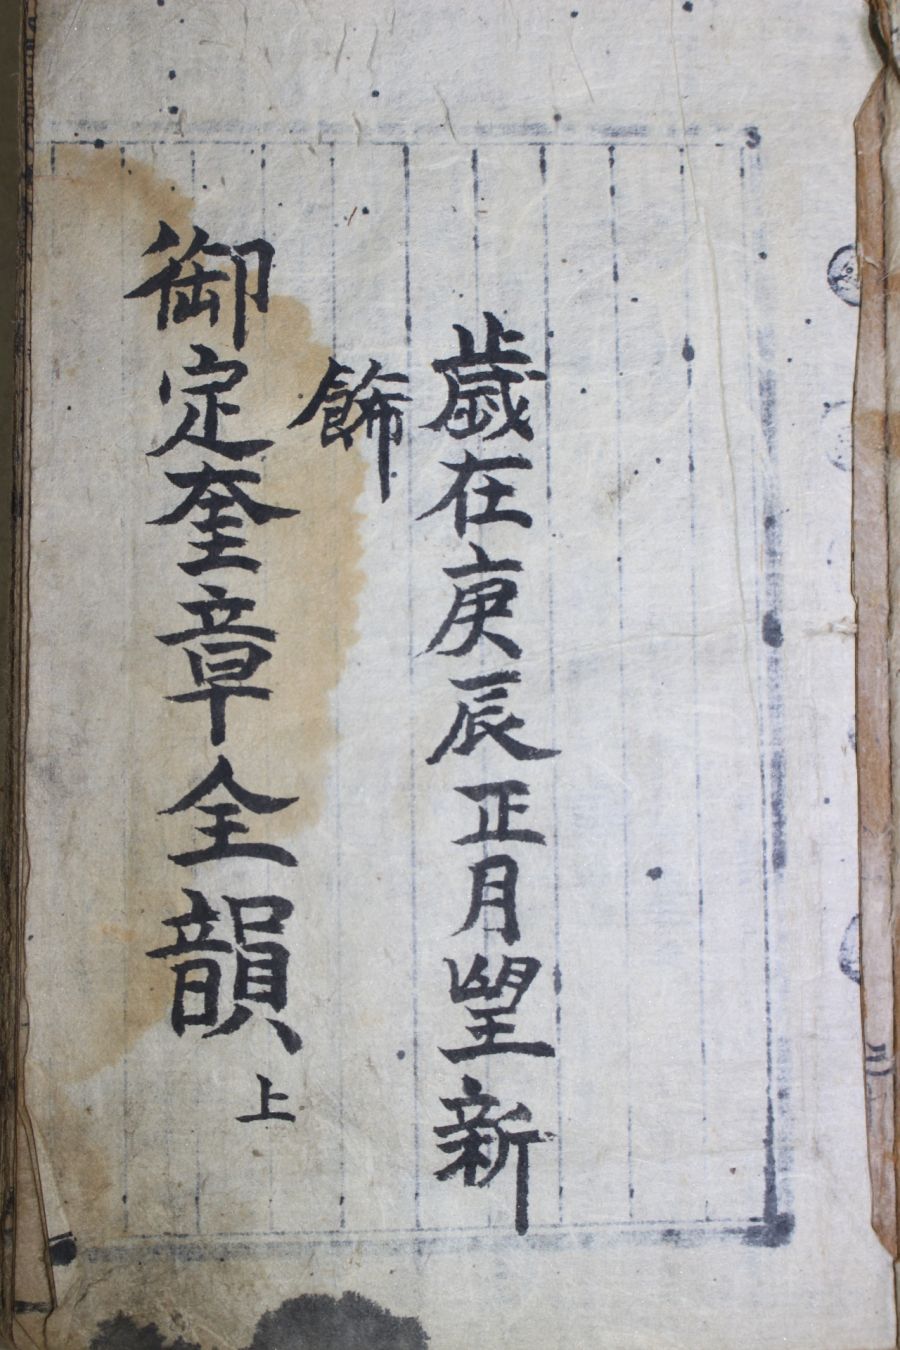 歲在庚辰正月望新
飾
御定奎章全韻 上